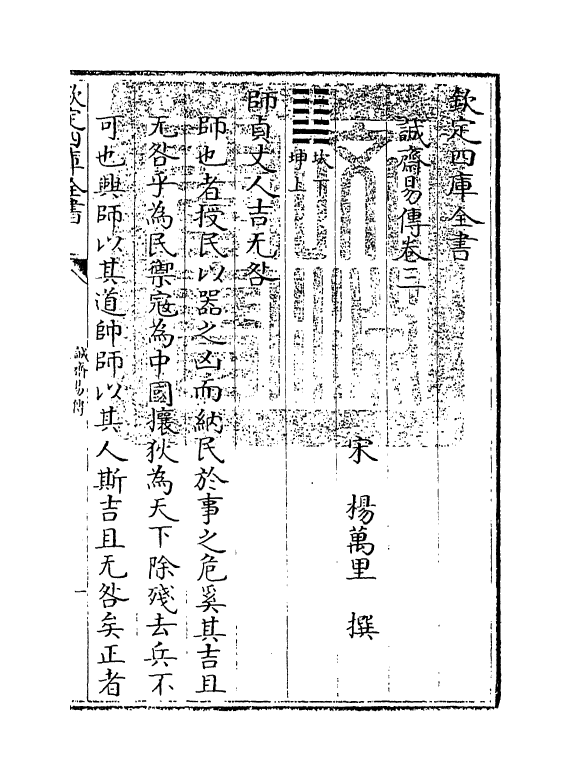 欽定四庫全書
誠齋易傳卷三
宋 楊萬里 撰
坎下
坤上
師貞丈人吉无咎
師也者授民以器之凶而納民於事之危奚其吉且
无咎乎為民禦寇為中國攘狄為天下除殘去兵不
可也興師以其道帥師以其人斯吉且无咎矣正者
欽定四庫全書
誠齋易傳
一